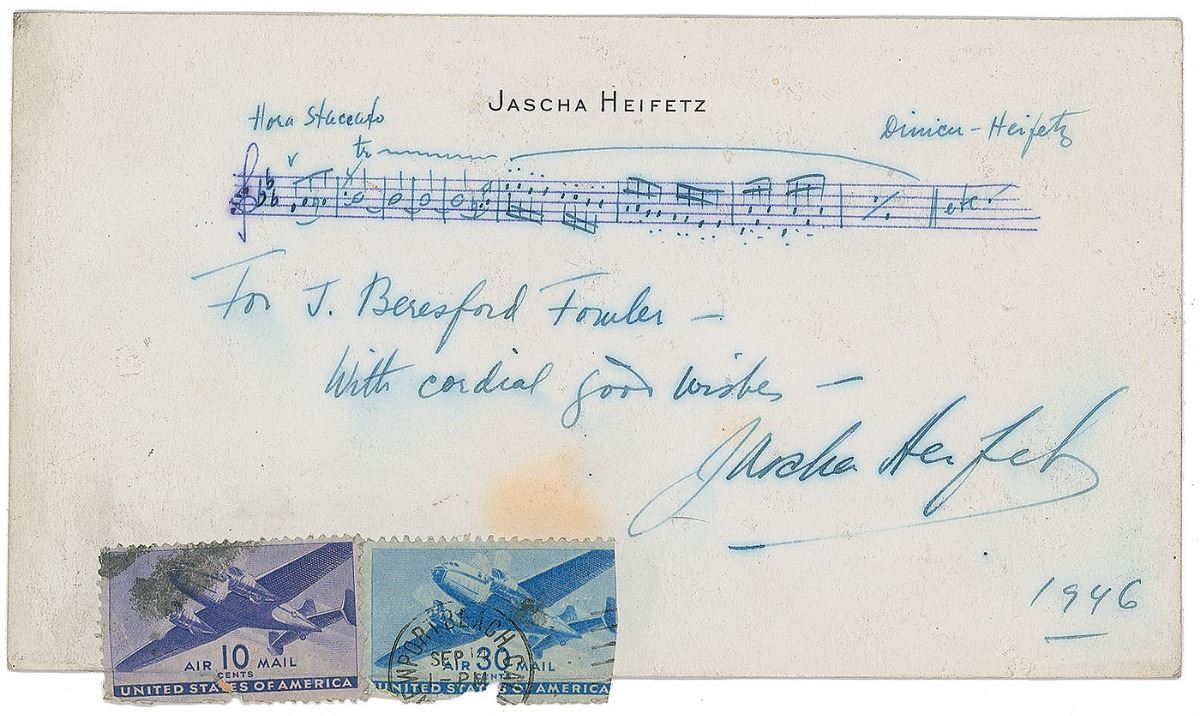 JASCHA HEIFETZ
Hora Staccato
Dinicu - Heifetz
tr
etc.
For J. Beresford Fowler -
With cordial good wishes -
Jascha Heifetz
1946
AIR 10 MAIL
CENTS
UNITED STATES OF AMERICA
AIR 30 MAIL
CENTS
UNITED STATES OF AMERICA
NEWPORT BEACH
SEP 12
1 - PM